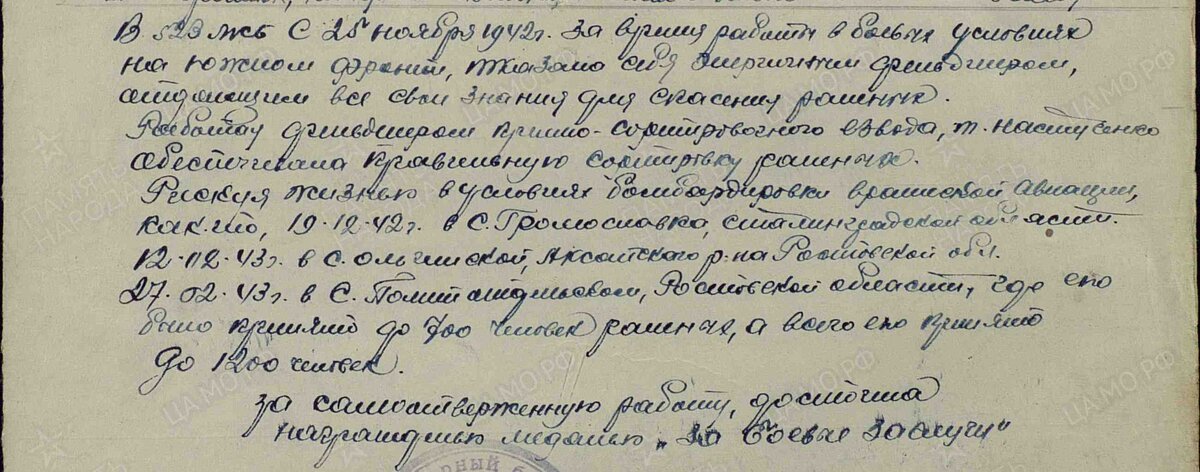 В 523 ЖБ с 25 ноября 1942г. За время работы в боевых условиях
на южном фронте, показала себя энергичным фельдшером,
отдающим все свои знания для спасения раненых.
Работая фельдшером приемо-сортировочного взвода, т. Настусенко
обеспечивала правильную сортировку раненых.
Рискуя жизнью в условиях бомбардировки вражеской авиации,
как-то, 19.12.42г. в с. Громославка, Сталинградской области.
12.02.43г. в с. Ольгинской, Аксайского р-на Ростовской обл.
27.02.43г. в с. Политотдельском, Ростовской области, где ею
было принято до 700 человек раненых, а всего ею принято
до 1200 человек.
За самоотверженную работу, достойна
награждения медалью „За Боевые Заслуги"
ЦАМО РФ
ПАМЯТЬ НАРОДА